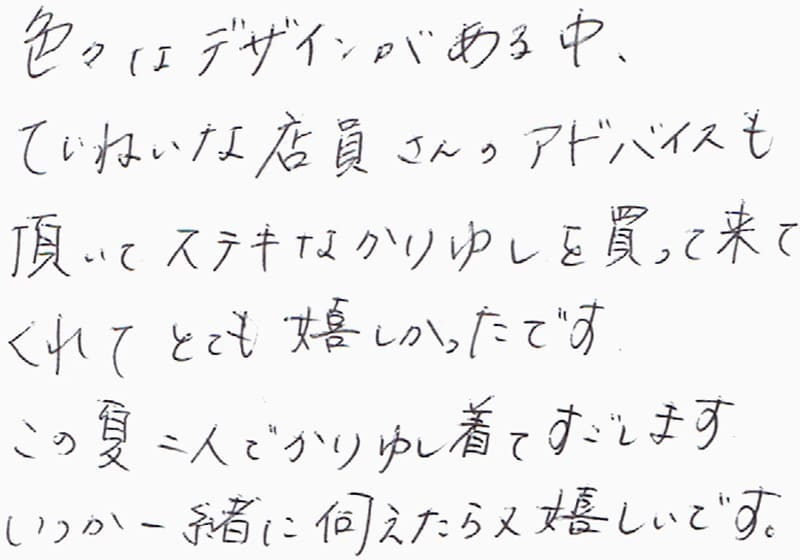 色々はデザインがある中、
ていねいな店員さんのアドバイスも
頂いてステキなかりゆしを買って来て
くれてとても嬉しかったです
この夏二人でかりゆし着てすごします
いつか一緒に伺えたら又嬉しいです。